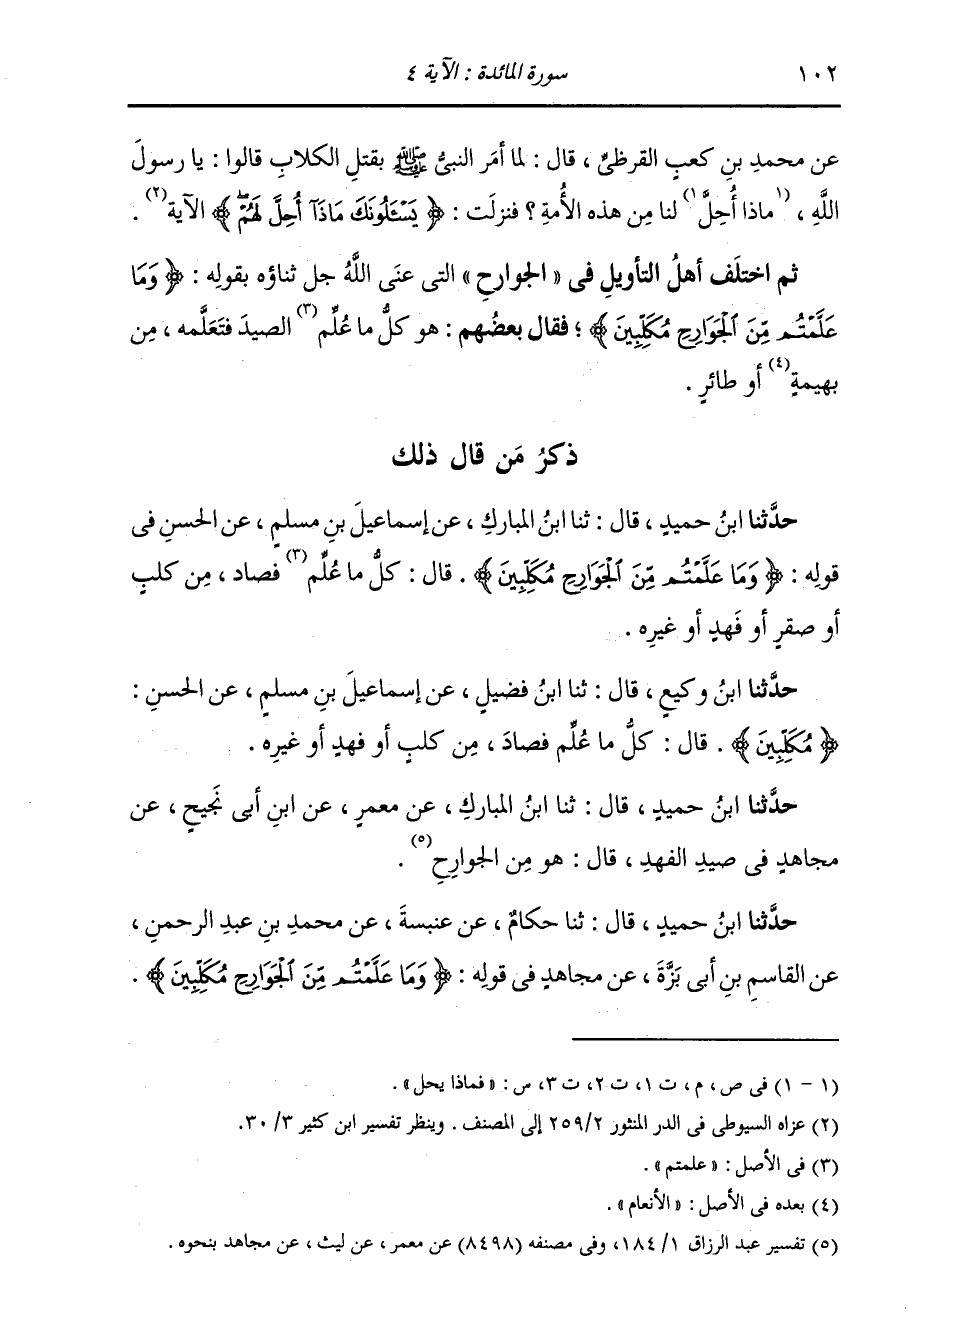 ١٠٢ سورة المائدة : الآية ٤
عن محمدِ بنِ كعبٍ القرظىِّ ، قال : لما أمَر النبىُّ ﷺ بقتلِ الكلابِ قالوا : يا رسولَ
اللَّهِ ، (١ماذا أُحِلَّ١) لنا مِن هذه الأُمةِ ؟ فنزلَت : ﴿ يَسْـَٔلُونَكَ مَاذَآ أُحِلَّ لَهُمْۖ ﴾ الآية(٢) .
ثم اختلَف أهلُ التأويلِ فى « الجوارحِ » التى عنَى اللَّهُ جل ثناؤه بقولِه : ﴿ وَمَا
عَلَّمْتُم مِّنَ ٱلْجَوَارِحِ مُكَلِّبِينَ ﴾ ؛ فقال بعضُهم : هو كلُّ ما عُلِّم(٣) الصيدَ فتَعَلَّمه ، مِن
بهيمةٍ(٤) أو طائرٍ .
ذكرُ مَن قال ذلك
حدَّثنا ابنُ حميدٍ ، قال : ثنا ابنُ المباركِ ، عن إسماعيلَ بنِ مسلمٍ ، عن الحسنِ فى
قولِه : ﴿ وَمَا عَلَّمْتُم مِّنَ ٱلْجَوَارِحِ مُكَلِّبِينَ ﴾ . قال : كلُّ ما عُلِّم(٣) فصاد ، مِن كلبٍ
أو صقرٍ أو فَهدٍ أو غيرِه .
حدَّثنا ابنُ وكيعٍ ، قال : ثنا ابنُ فضيلٍ ، عن إسماعيلَ بنِ مسلمٍ ، عن الحسنِ :
﴿ مُكَلِّبِينَ ﴾ . قال : كلُّ ما عُلِّم فصادَ ، مِن كلبٍ أو فهدٍ أو غيرِه .
حدَّثنا ابنُ حميدٍ ، قال : ثنا ابنُ المباركِ ، عن معمرٍ ، عن ابنِ أبى نَجيحٍ ، عن
مجاهدٍ فى صيدِ الفهدِ ، قال : هو مِن الجوارحِ(٥) .
حدَّثنا ابنُ حميدٍ ، قال : ثنا حكامٌ ، عن عنبسةَ ، عن محمدِ بنِ عبدِ الرحمنِ ،
عن القاسمِ بنِ أبى بَزَّةَ ، عن مجاهدٍ فى قولِه : ﴿ وَمَا عَلَّمْتُم مِّنَ ٱلْجَوَارِحِ مُكَلِّبِينَ ﴾ .
(١ - ١) فى ص ، م ، ت ١، ت ٢، ت ٣، س : « فماذا يحل » .
(٢) عزاه السيوطى فى الدر المنثور ٢٥٩/٢ إلى المصنف . وينظر تفسير ابن كثير ٣/ ٣٠.
(٣) فى الأصل : « علمتم » .
(٤) بعده فى الأصل : « الأنعام » .
(٥) تفسير عبد الرزاق ١/ ١٨٤، وفى مصنفه (٨٤٩٨) عن معمر ، عن ليث ، عن مجاهد بنحوه .